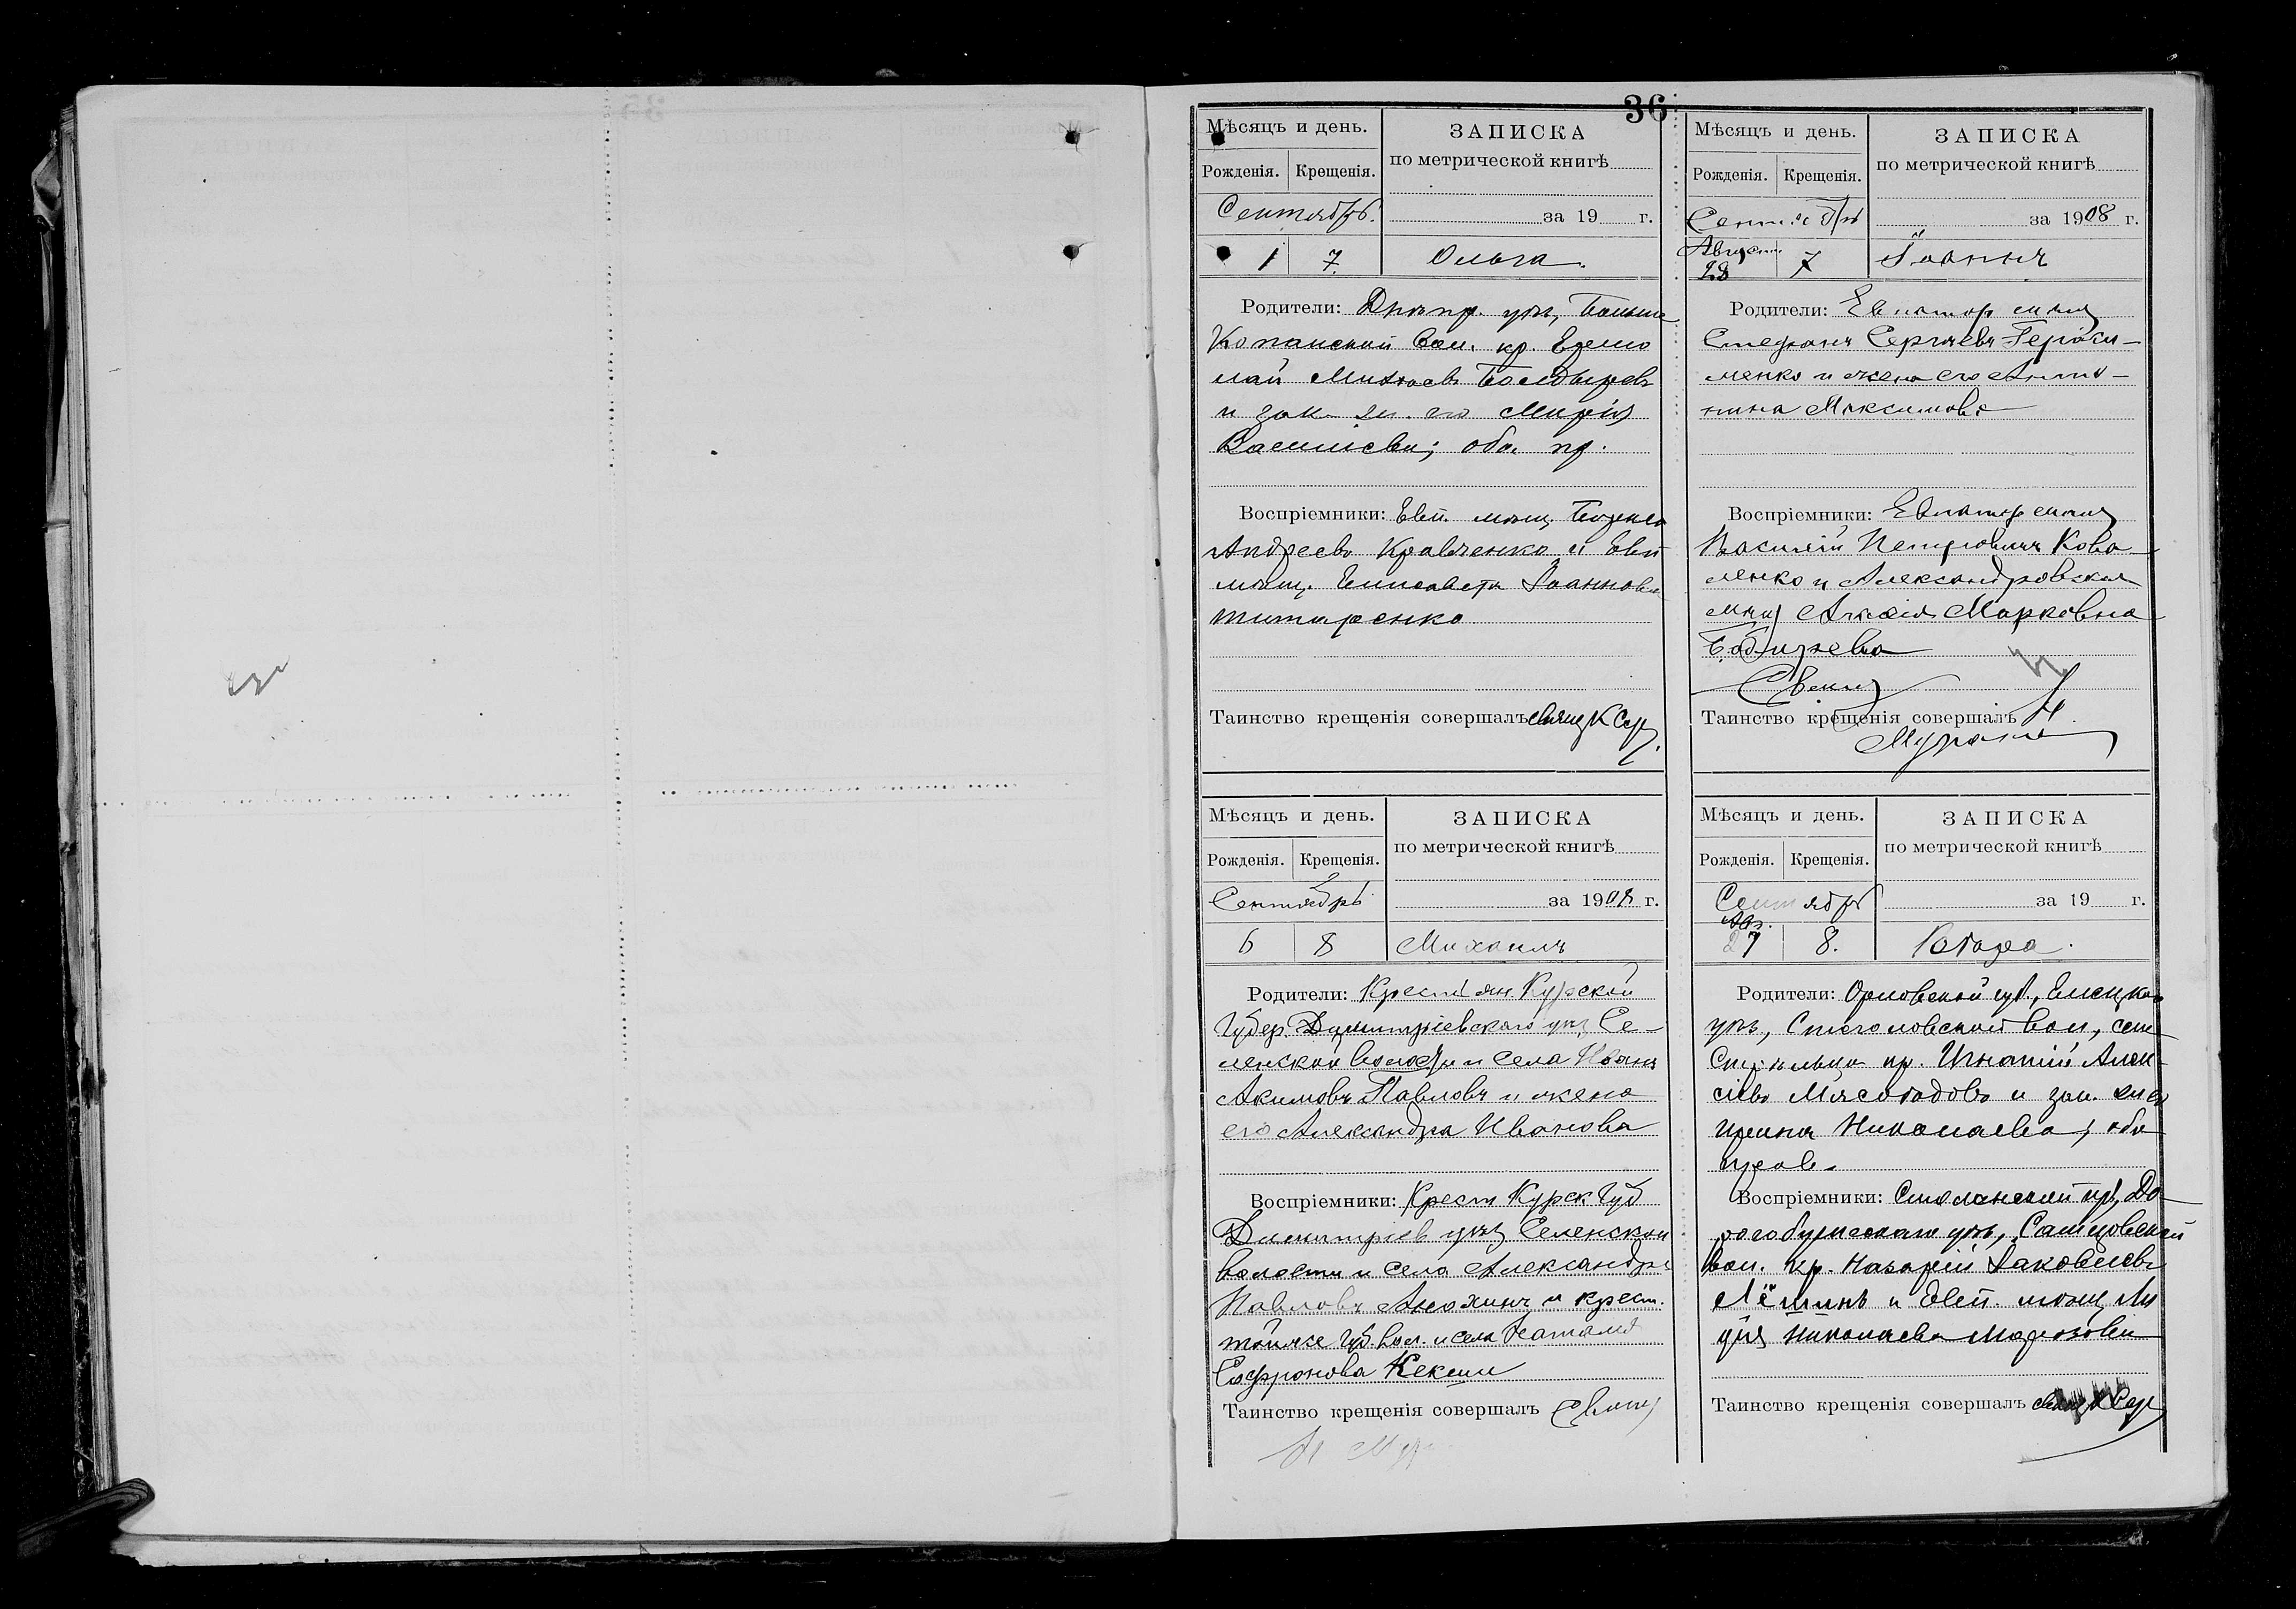 36
Мѣсяцъ и день.
ЗАПИСКА
по метрической книгѣ
Рожденія. Крещенія.
Сентябрь.
за 19 г.
1 7 Ольга.
Родители: Днѣпр. уѣз, Больше
Копанской вол. кр.
Болдырев
и зак. Марія
Василіева; оба пр.
Воспріемники: Евп. мѣщ.
Андреевъ Кравченко и Евп
мѣщ. Елисавета Іоаннова
Титаренко
Таинство крещенія совершалъ свящ К Сер
Мѣсяцъ и день.
ЗАПИСКА
по метрической книгѣ
Рожденія. Крещенія.
Сентябрь
за 1908 г.
Август
28 7 Іоаннъ
Родители: Евпатор мѣщ
Стефанъ Сергѣевъ Гераси-
менко и жена его Анто-
нина Максимова
Воспріемники: Евпатор мѣщ
Василій Петровичъ Кова-
ленко и Александровская
мѣщ Марковна
Свящ
Таинство крещенія совершалъ Н.
Мѣсяцъ и день.
ЗАПИСКА
по метрической книгѣ
Рожденія. Крещенія.
Сентябрь
за 1908 г.
6 8 Михаилъ
Родители: Крестьян. Курской
Губер. Димитріевского уѣз Се-
ленской волости и села Иванъ
Акимовъ Павловъ и жена
его Александра Иванова
Воспріемники: Крест Курск Губ
Димитріев уѣз Селенской
волости и села Александръ
Павловъ Анохинъ и крест.
тойже Губ. вол. и села Наталія
Софронова
Таинство крещенія совершалъ Свящ
Н Мур
Мѣсяцъ и день.
ЗАПИСКА
по метрической книгѣ
Рожденія. Крещенія.
Сентябрь
за 19 г.
Авг.
27 8.
Родители: Орловской губ., Елецкаго
уѣз., вол., села
кр. Игнатій Алек-
сіевъ Мясоѣдовъ и зак.
Ирина Николаева, оба
прав.
Воспріемники: Смоленской губ, До-
рогобужскаго уѣз,
вол. кр. Назарій Іаковлевъ
и Евп. мѣщ Ли
дія Николаева Морозова
Таинство крещенія совершалъ К Сер